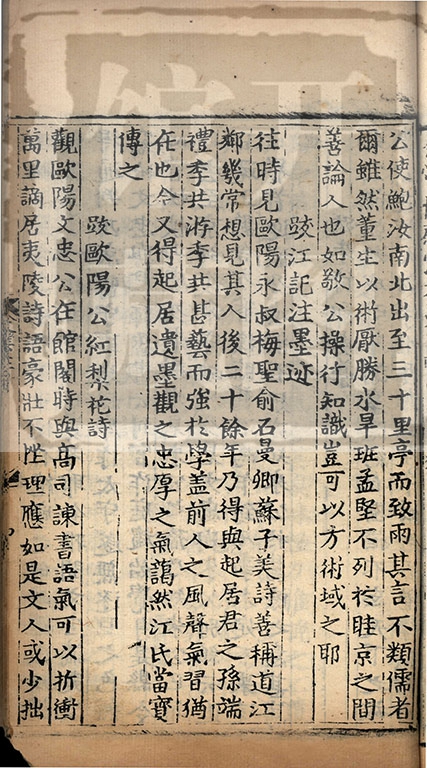 公使鮑汝南北出至三十里亭而致雨其言不類儒者
爾雖然董生以術厭勝水旱班孟堅不列於眭京之間
善論人也如敬公操行知識豈可以方術域之耶
跋江記注墨迹
往時見歐陽永叔梅聖俞石曼卿蘇子美詩善稱道江
鄰幾常想見其人後二十餘年乃得與起居君之孫端
禮季共游季共甚藝而強於學蓋前人之風聲氣習猶
在也今又得起居遺墨觀之忠厚之氣藹然江氏當寶
傳之
跋歐陽公紅梨花詩
觀歐陽文忠公在館閣時與高司諫書語氣可以折衝
萬里謫居夷陵詩語豪壯不挫理應如是文人或少拙